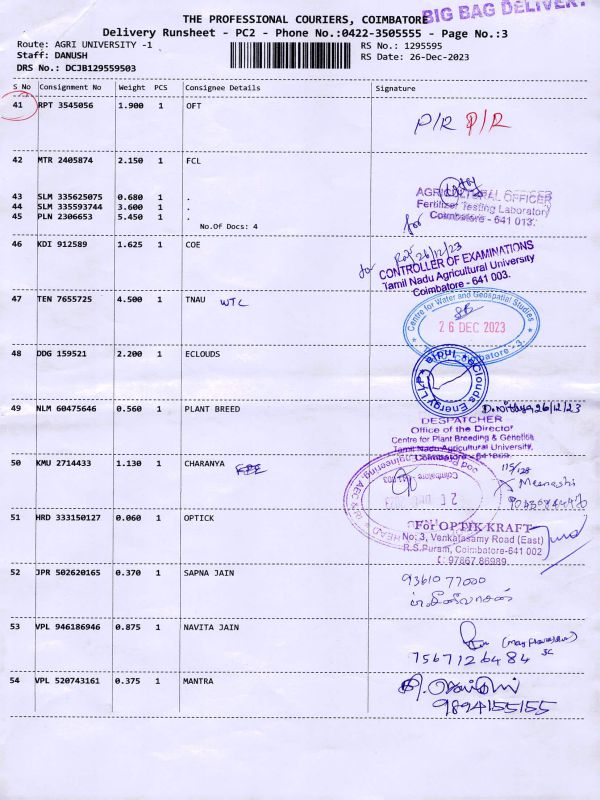 BIG BAG DELIVERY
THE PROFESSIONAL COURIERS, COIMBATORE
Delivery Runsheet - PC2 - Phone No.:0422-3505555 - Page No.:3
Route: AGRI UNIVERSITY -1
Staff: DANUSH
DRS No.: DCJB129559503
RS No.: 1295595
RS Date: 26-Dec-2023
S No Consignment No Weight PCS Consignee Details Signature
41 RPT 3545056 1.900 1 OFT
P/R P/R
42 MTR 2405874 2.150 1 FCL
43 SLM 335625075 0.680 1 .
44 SLM 335593744 3.600 1 .
45 PLN 2306653 5.450 1 .
No.Of Docs: 4
AGRICULTURAL OFFICER
Fertilizer Testing Laboratory
Coimbatore - 641 013.
for
46 KDI 912589 1.625 1 COE
26/12/23
for CONTROLLER OF EXAMINATIONS
Tamil Nadu Agricultural University
Coimbatore - 641 003.
47 TEN 7655725 4.500 1 TNAU WTC
Centre for Water and Geospatial Studies
26 DEC 2023
48 DDG 159521 2.200 1 ECLOUDS
eClouds Energy LLP
49 NLM 60475646 0.560 1 PLANT BREED
D. Nithya 26/12/23
DESPATCHER
Office of the Director
Centre for Plant Breeding & Genetics
Tamil Nadu Agricultural University,
Coimbatore - 641 003
50 KMU 2714433 1.130 1 CHARANYA
HEAD
Coimbatore
115/128
Meenachi
51 HRD 333150127 0.060 1 OPTICK
For OPTIK KRAFT
No: 3, Venkatasamy Road (East)
R.S.Puram, Coimbatore-641 002
✆: 97867 86989
52 JPR 502620165 0.370 1 SAPNA JAIN
93610 77000
53 VPL 946186946 0.875 1 NAVITA JAIN
7567126484
54 VPL 520743161 0.375 1 MANTRA
9894155155